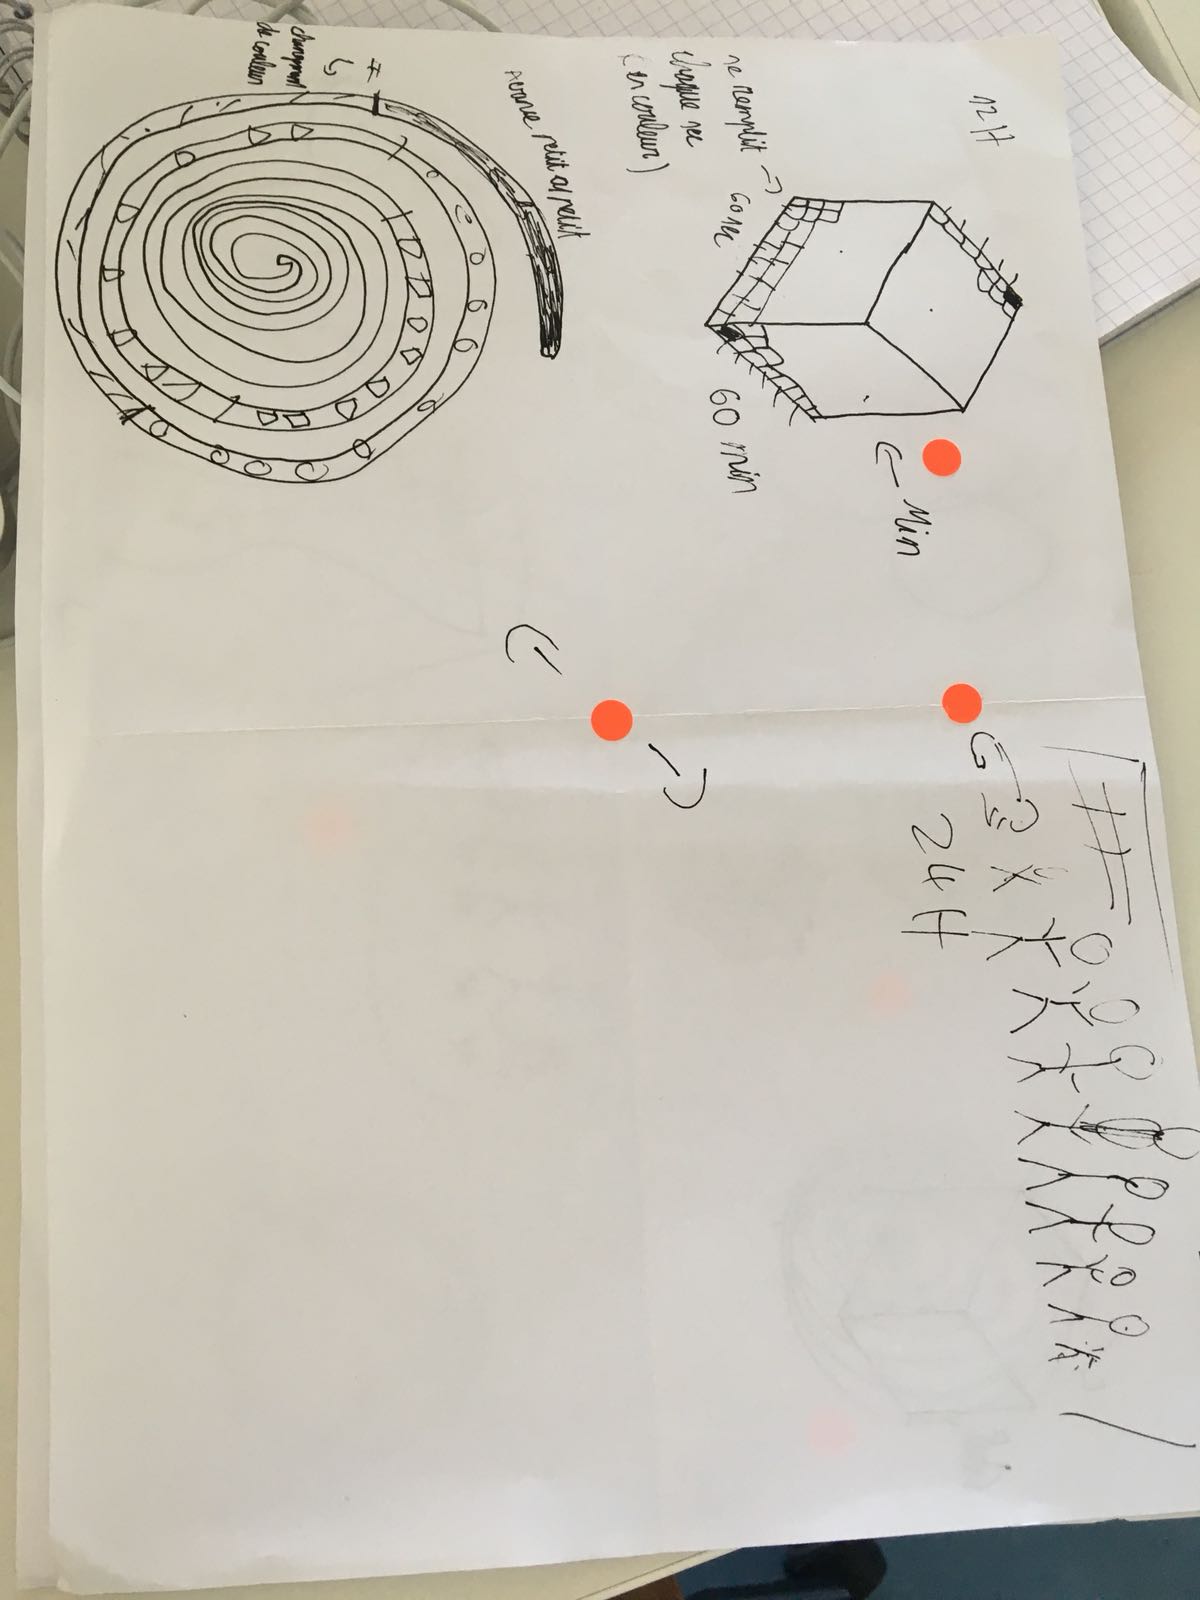 12H
se remplit
chaque sec
(en couleur)
60 sec
60 min
Min
Avance petit à petit
≠
changement
de couleur
24H